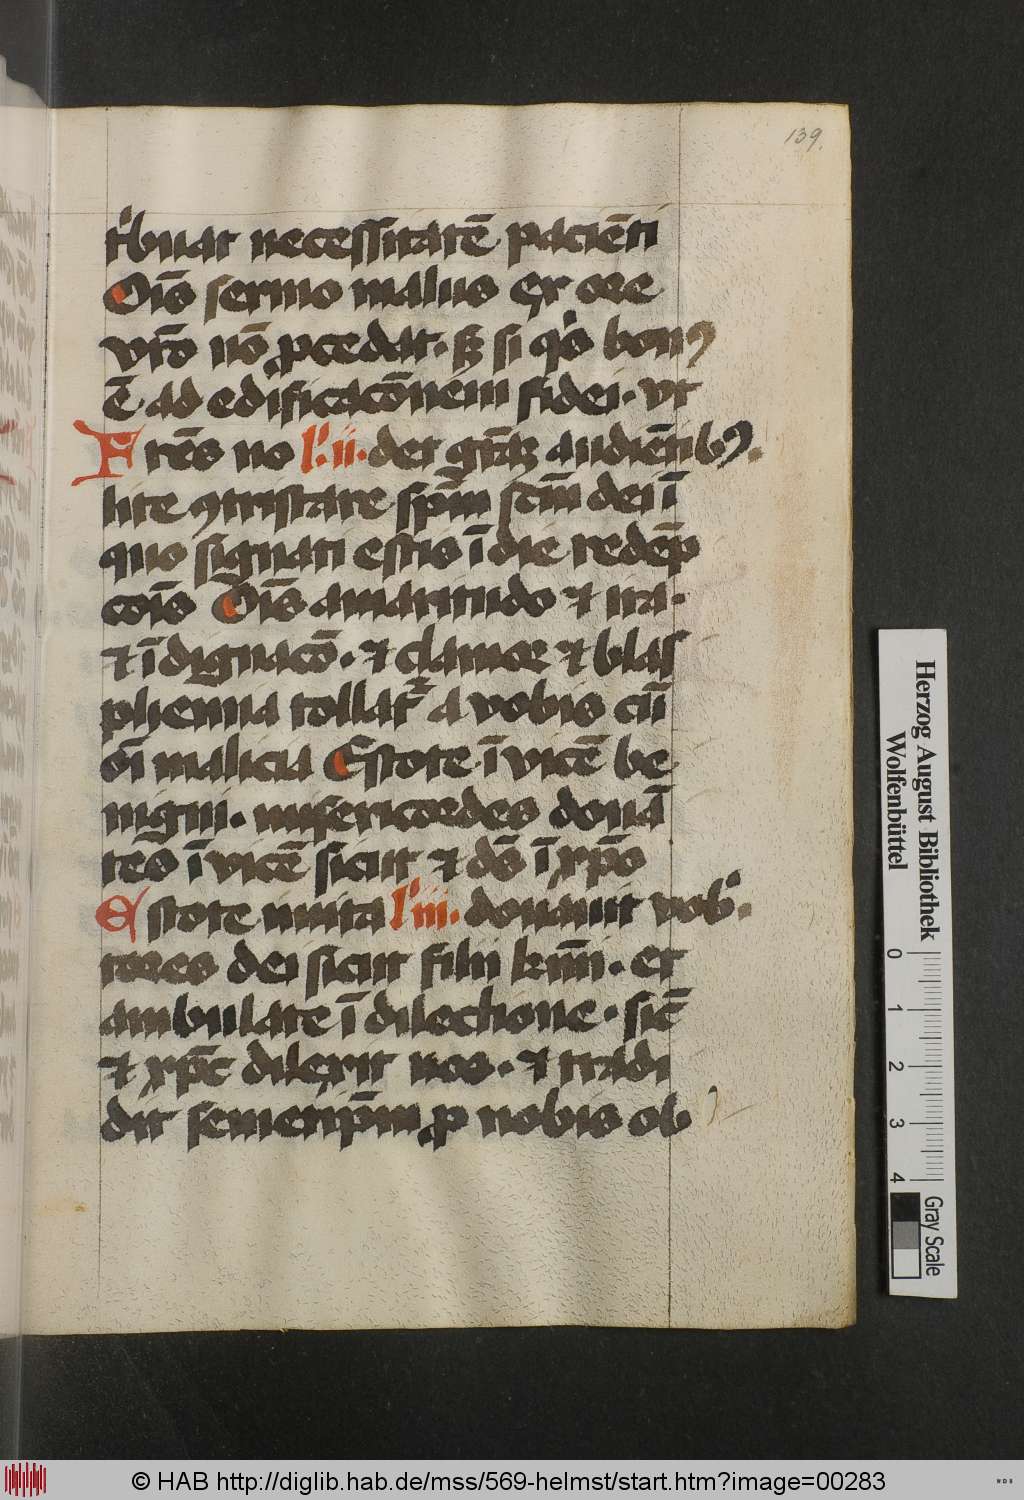 139.
tͥbuat necessitatē paciēti
Oīs sermo malus Ex ore
vr̄o nō ꝓcedat · sꝫ si qͥs bonꝰ
ē · ad edificacōnem fidei · vt
Frēs no lͨ · ii · det gr̄aꝫ audiētibꝰ ·
lite ꝯtristare sp̄m sc̄m dei ī
quo signati estis ī die redēp
cōis Oīs amaritudo ⁊ ira ·
⁊ īdignacō · ⁊ clamor ⁊ blas
phemia tollatᷣ a vobis cū
oī malicia Estote ī vicē be
nigni · misericordes donā
tes ī vicē sicut ⁊ ds̄ ī xp̄o
Estote imita lͨ iii · donauit vobͥ ·
tores dei sicut filii kr̄mi · et
ambulate ī dilectione · sic̄
⁊ xp̄c dilexit nos · ⁊ tradi
dit semetip̄m ꝓ nobis ob
Herzog August Bibliothek
Wolfenbüttel
0 1 2 3 4
Gray Scale
© HAB http://diglib.hab.de/mss/569-helmst/start.htm?image=00283